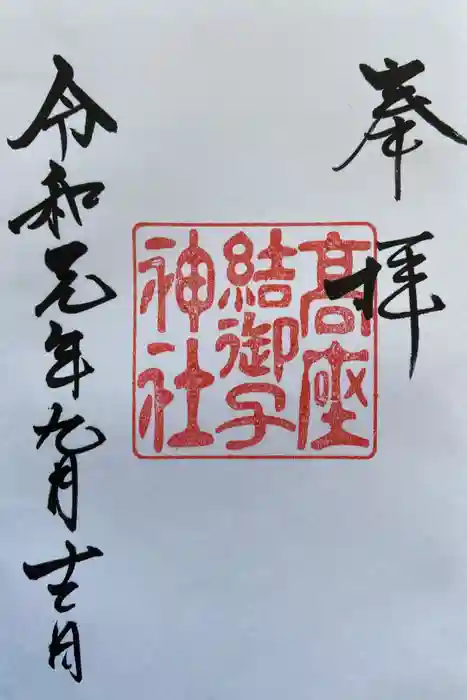 奉拝
髙座
結御子
神社
令和元年九月十七日